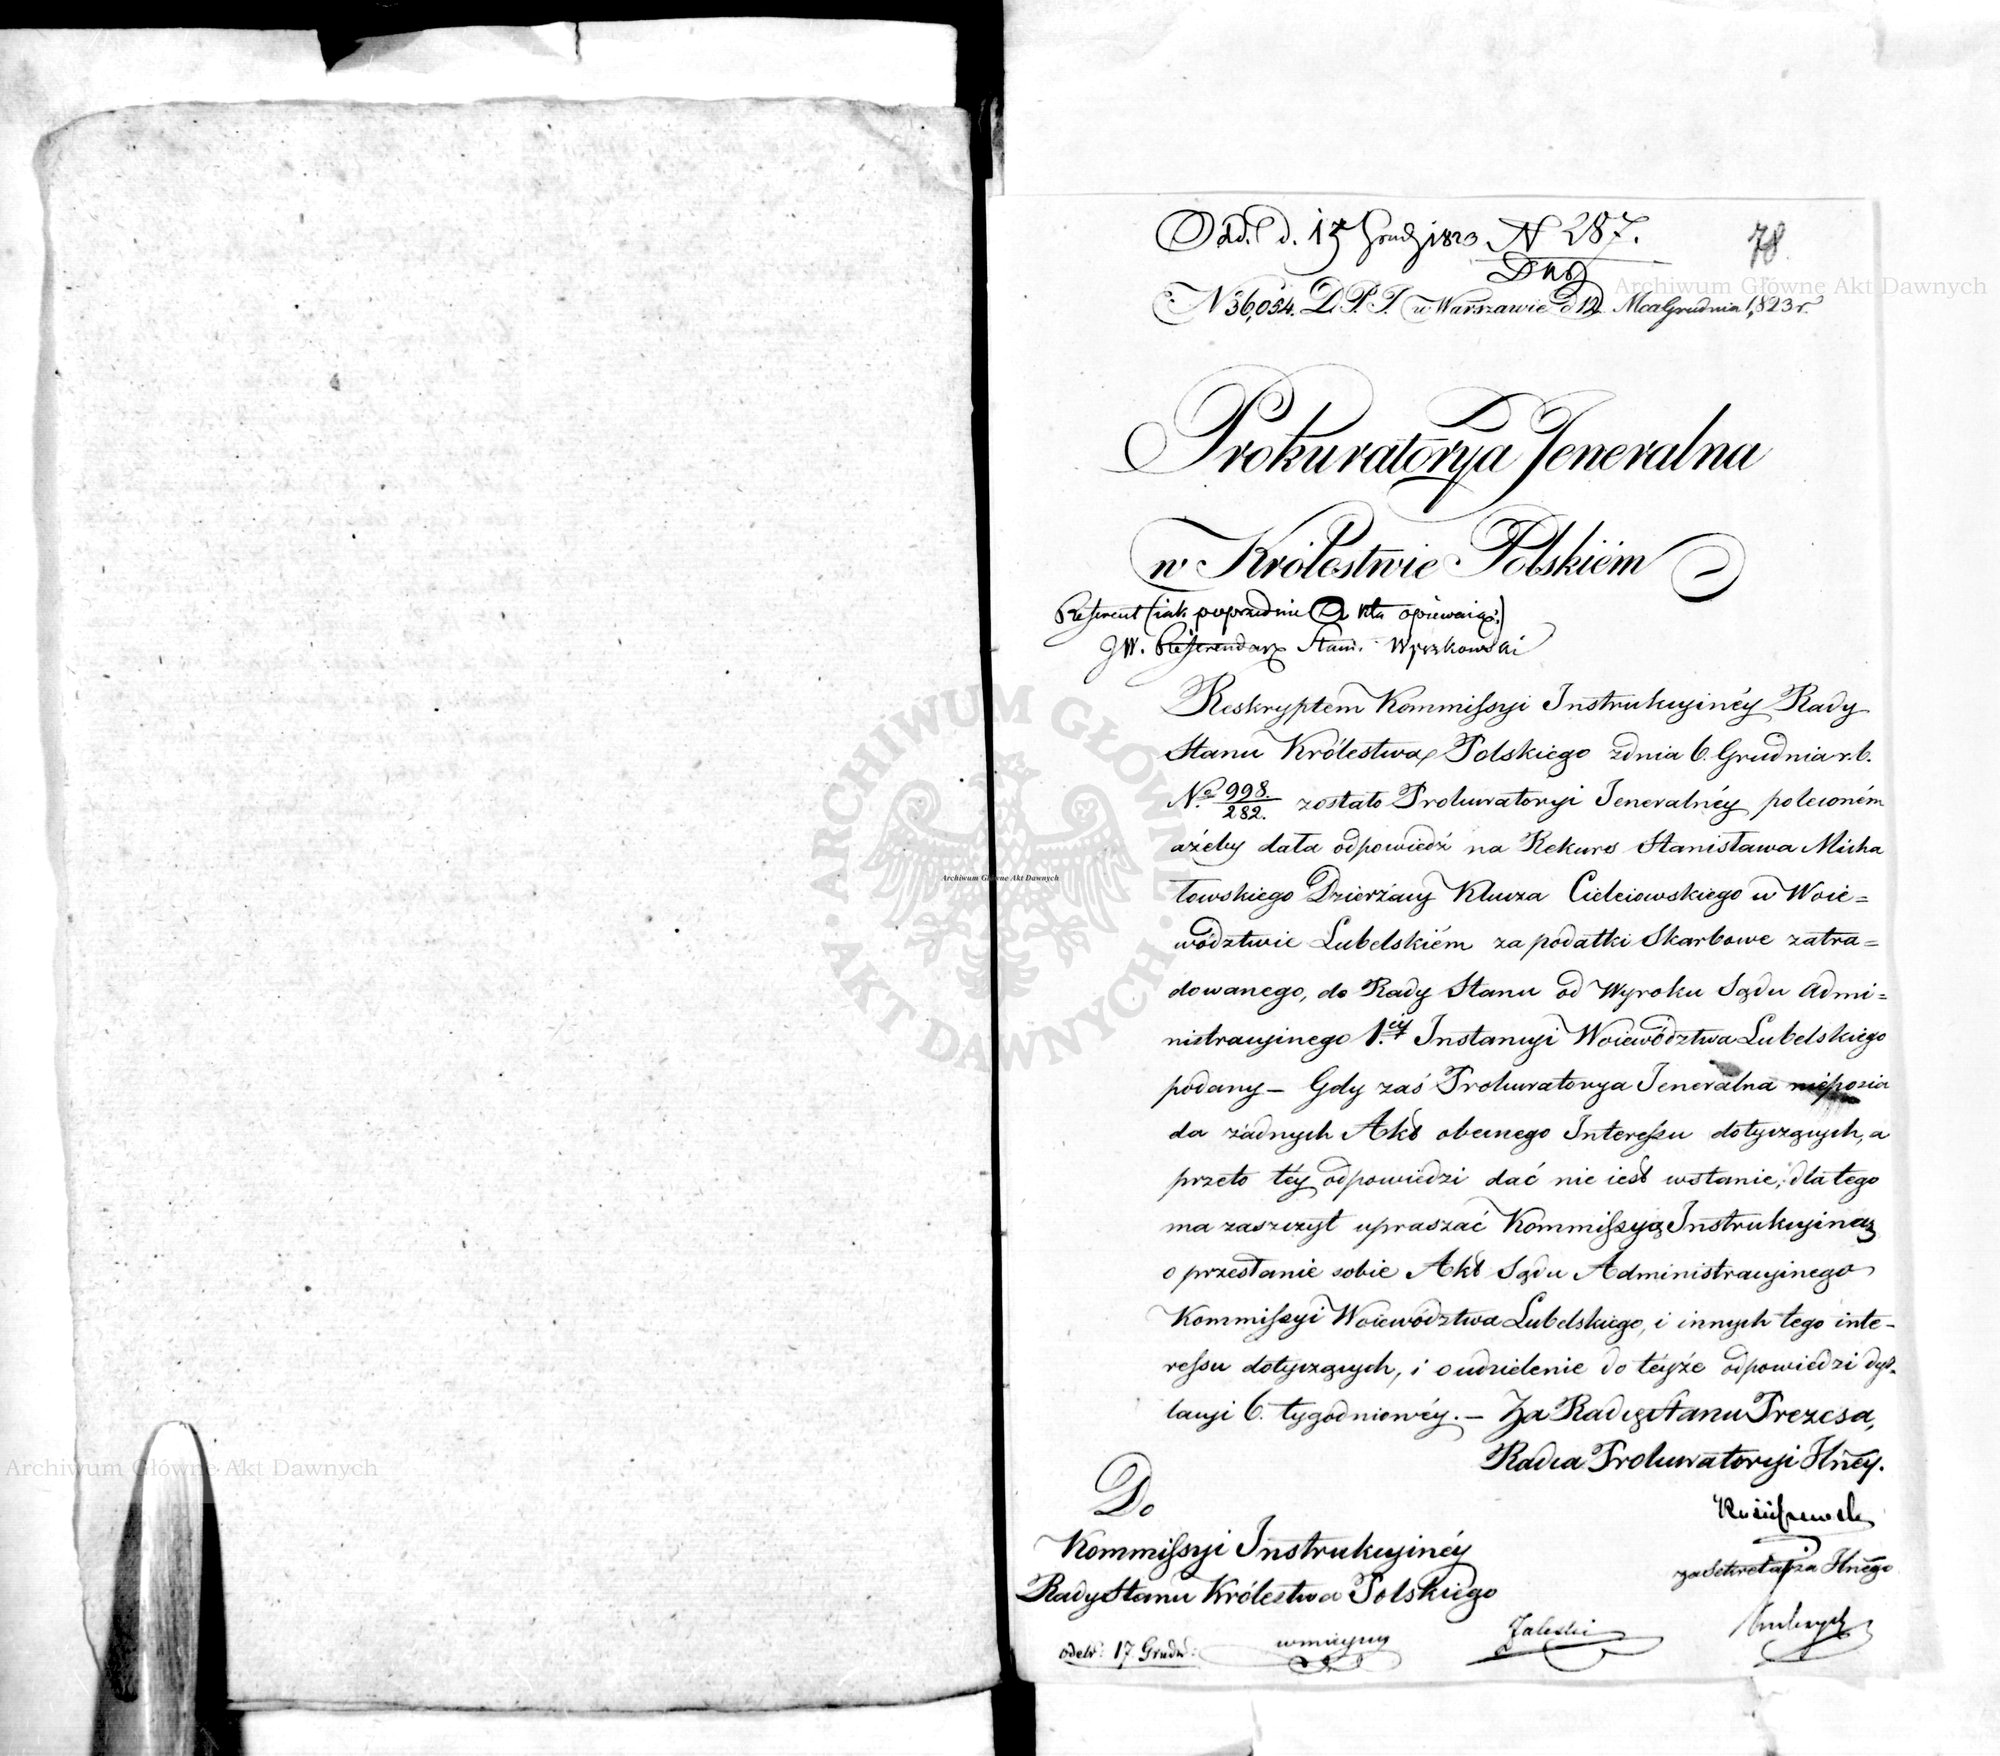 Odd. d. 17 Grud. 1823 N 287.
78.
N 36,054. D. P. J. w Warszawie d 12 Mca Grudnia 1823 r.
Prokuratorya Jeneralna
w Królestwie Polskiém
Referent (iak poprzednie
JW. Referendarz Stani. Wyszkowski
Reskryptem Kommissyi Instrukcyinéy Rady
Stanu Królestwa Polskiego zdnia 6. Grudnia r. b.
No. 998./282. zostało Prokuratoryi Jeneralnéy poleconém
ażeby dała odpowiedź na Rekurs Stanisława Micha
łowskiego Dzierżawy Klucza Cieleiowskiego w Woie=
wództwie Lubelskiém za podatki Skarbowe zatra=
dowanego, do Rady Stanu od Wyroku Sądu Admi=
nistracyinego 1.éy Instancyi Woiewództwa Lubelskiego
podany – Gdy zaś Prokuratorya Jeneralna nieposia
da żadnych Akt obecnego Interessu dotyczących, a
przeto téy odpowiedzi dać nie iest wstanie, dla tego
ma zaszczyt upraszać Kommissyą Instrukcyiną
o przesłanie sobie Akt Sądu Administracyinego
Kommissyi Woiewództwa Lubelskiego, i innych tego inte-
ressu dotyczących, i o udzielenie do téyże odpowiedzi dy-
lacyi 6. tygodniowéy. – Za Radcę Stanu Prezesa,
Radca Prokuratoryi Jlnéy.
Do
Kommissyi Instrukcyinéy
Rady Stanu Królestwa Polskiego
za Sekretarza Jlnego
odebr: 17 Grudn:
w mieyscu
Zaleski
Archiwum Główne Akt Dawnych
Archiwum Główne Akt Dawnych
Archiwum Główne Akt Dawnych
ARCHIWUM GŁÓWNE AKT DAWNYCH